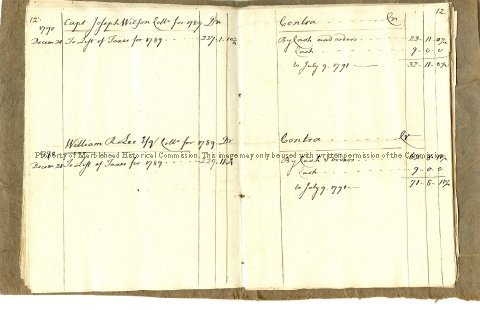 12
1790
Capt Joseph Wilson Collr for 1789 Dr
Decem 28 To List of Taxes for 1789 227 1
William R Lee Collr for 1789 Dr
1790
Decem 28 To List of Taxes for 1789
12
Contra Cr
By Cash and orders 23 11
Cash 9 0 0
to July 9 1791 32 11
Contra Cr
By Cash & orders
Cash 9 0 0
to July 9 1791 71 8
Property of Marblehead Historical Commission. This image may only be used with written permission of the Commission